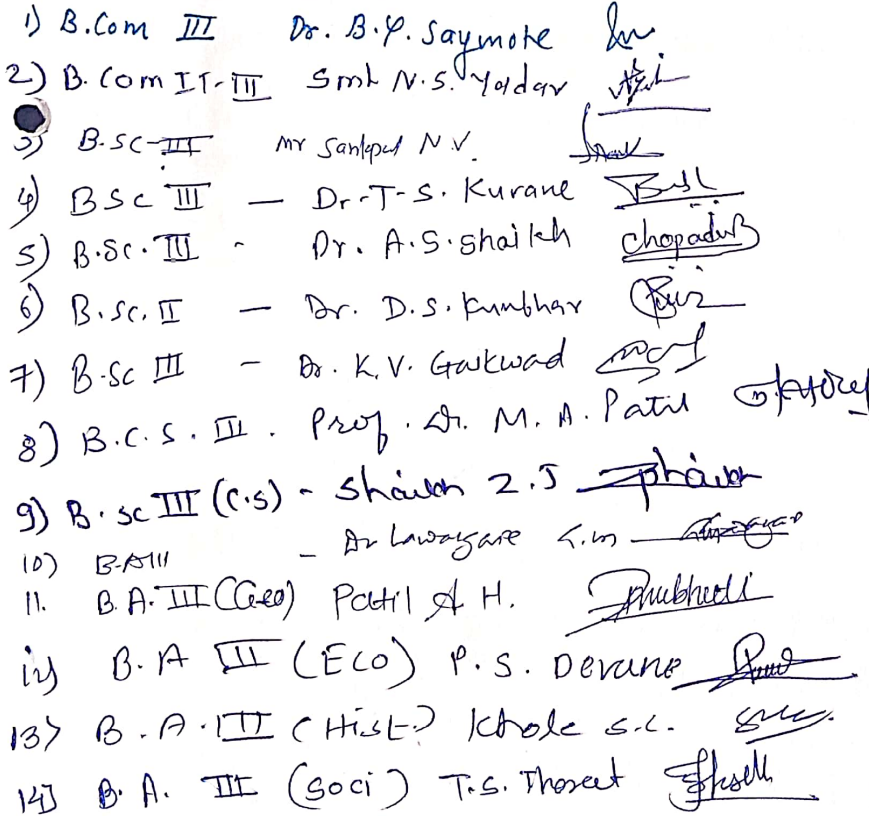 1) B.Com III Dr. B.Y. Saymote
2) B. Com II-III Smt N.S. Yadav
3) B.SC-III Mr Sankpal N.V.
4) BSC III - Dr. T-S. Kurane
5) B.Sc. III - Dr. A.S. Shaikh ChopadeB
6) B.Sc. II - Dr. D.S. Kumbhar
7) B.Sc III - Dr. K.V. Gaikwad
8) B.C.S. III. Prof. Dr. M. A. Patil
9) B.sc III (C.S) - Shaikh Z.J
10) B-AIII - Dr Lawangare
11. B.A. III (Geo) Patil A H.
B.A III (Eco) P.S. Devane
13) B.A. III (Hist) Khole S.C.
14] B. A. III (Soci) T.S. Thorat